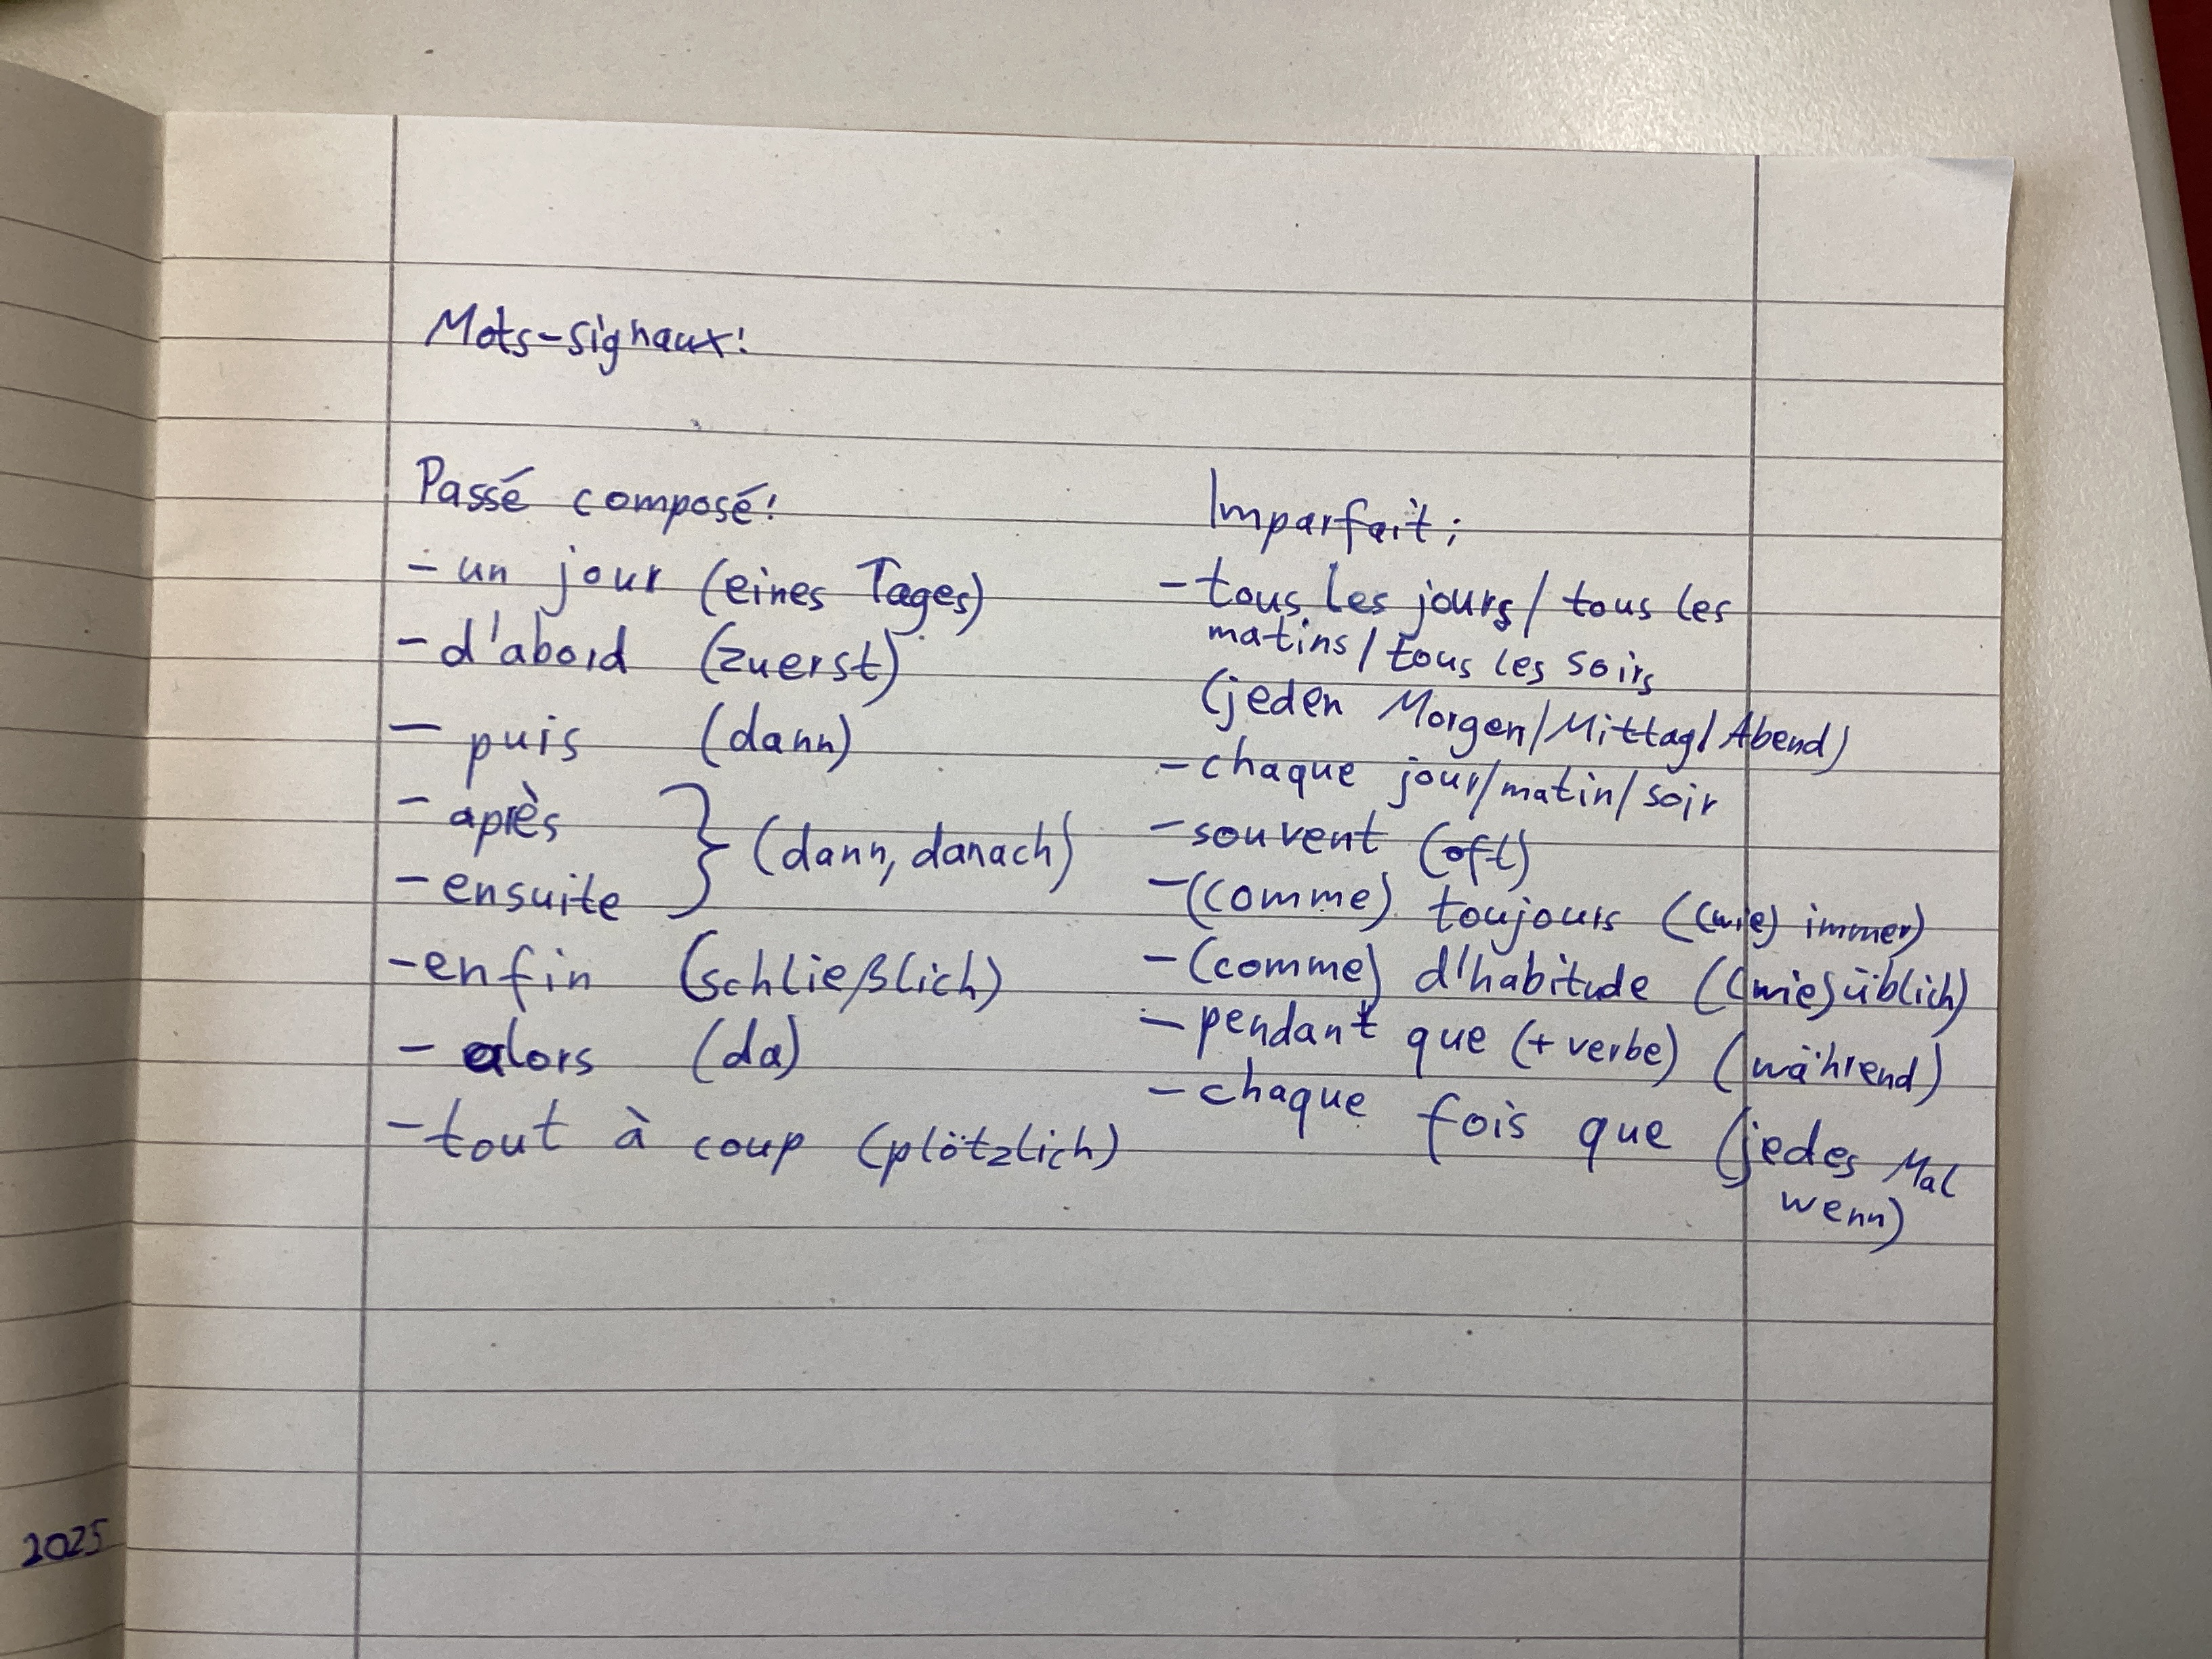 Mots-signaux:
Passé composé:
- un jour (eines Tages)
- d'abord (zuerst)
- puis (dann)
- après
- ensuite } (dann, danach)
- enfin (schließlich)
- alors (da)
- tout à coup (plötzlich)
Imparfait:
- tous les jours / tous les
matins / tous les soirs
(jeden Morgen/Mittag/Abend)
- chaque jour/matin/soir
- souvent (oft)
- (comme) toujours ((wie) immer)
- (comme) d'habitude ((wie) üblich)
- pendant que (+ verbe) (während)
- chaque fois que (jedes Mal
wenn)
2025